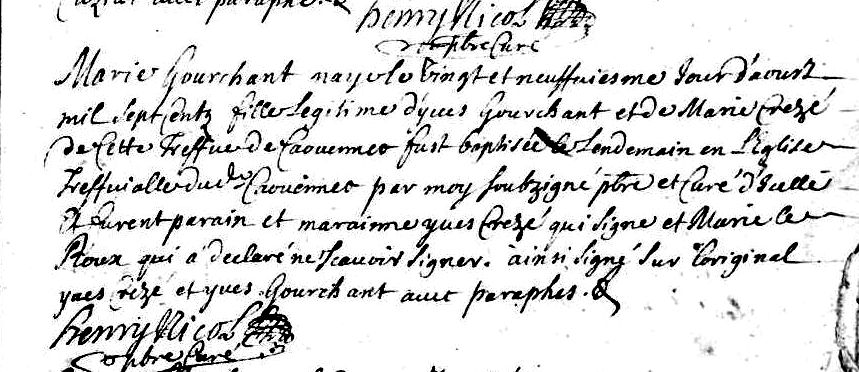 avec paraphe. &
henry Nicol
pbre Curé
Marie Gourchant naye le vingt et neuffuiesme Jour d'aoust
mil sept Centz fille legitime d'yves Gourchant et de Marie Crezé
de Cette Treffve de Caouennec fust baptisée le Lendemain en L'Eglise
Treffvialle dud. Caouennec par moy soubzigné pbre et Curé d'Icelle
Et furent parain et maraine yves Crezé qui signe et Marie le
Roux qui a declaré ne scavoir signer. ainsi signé sur l'original
yves Crezé et yves Gourchant avec paraphes. &
henry Nicol
pbre Curé